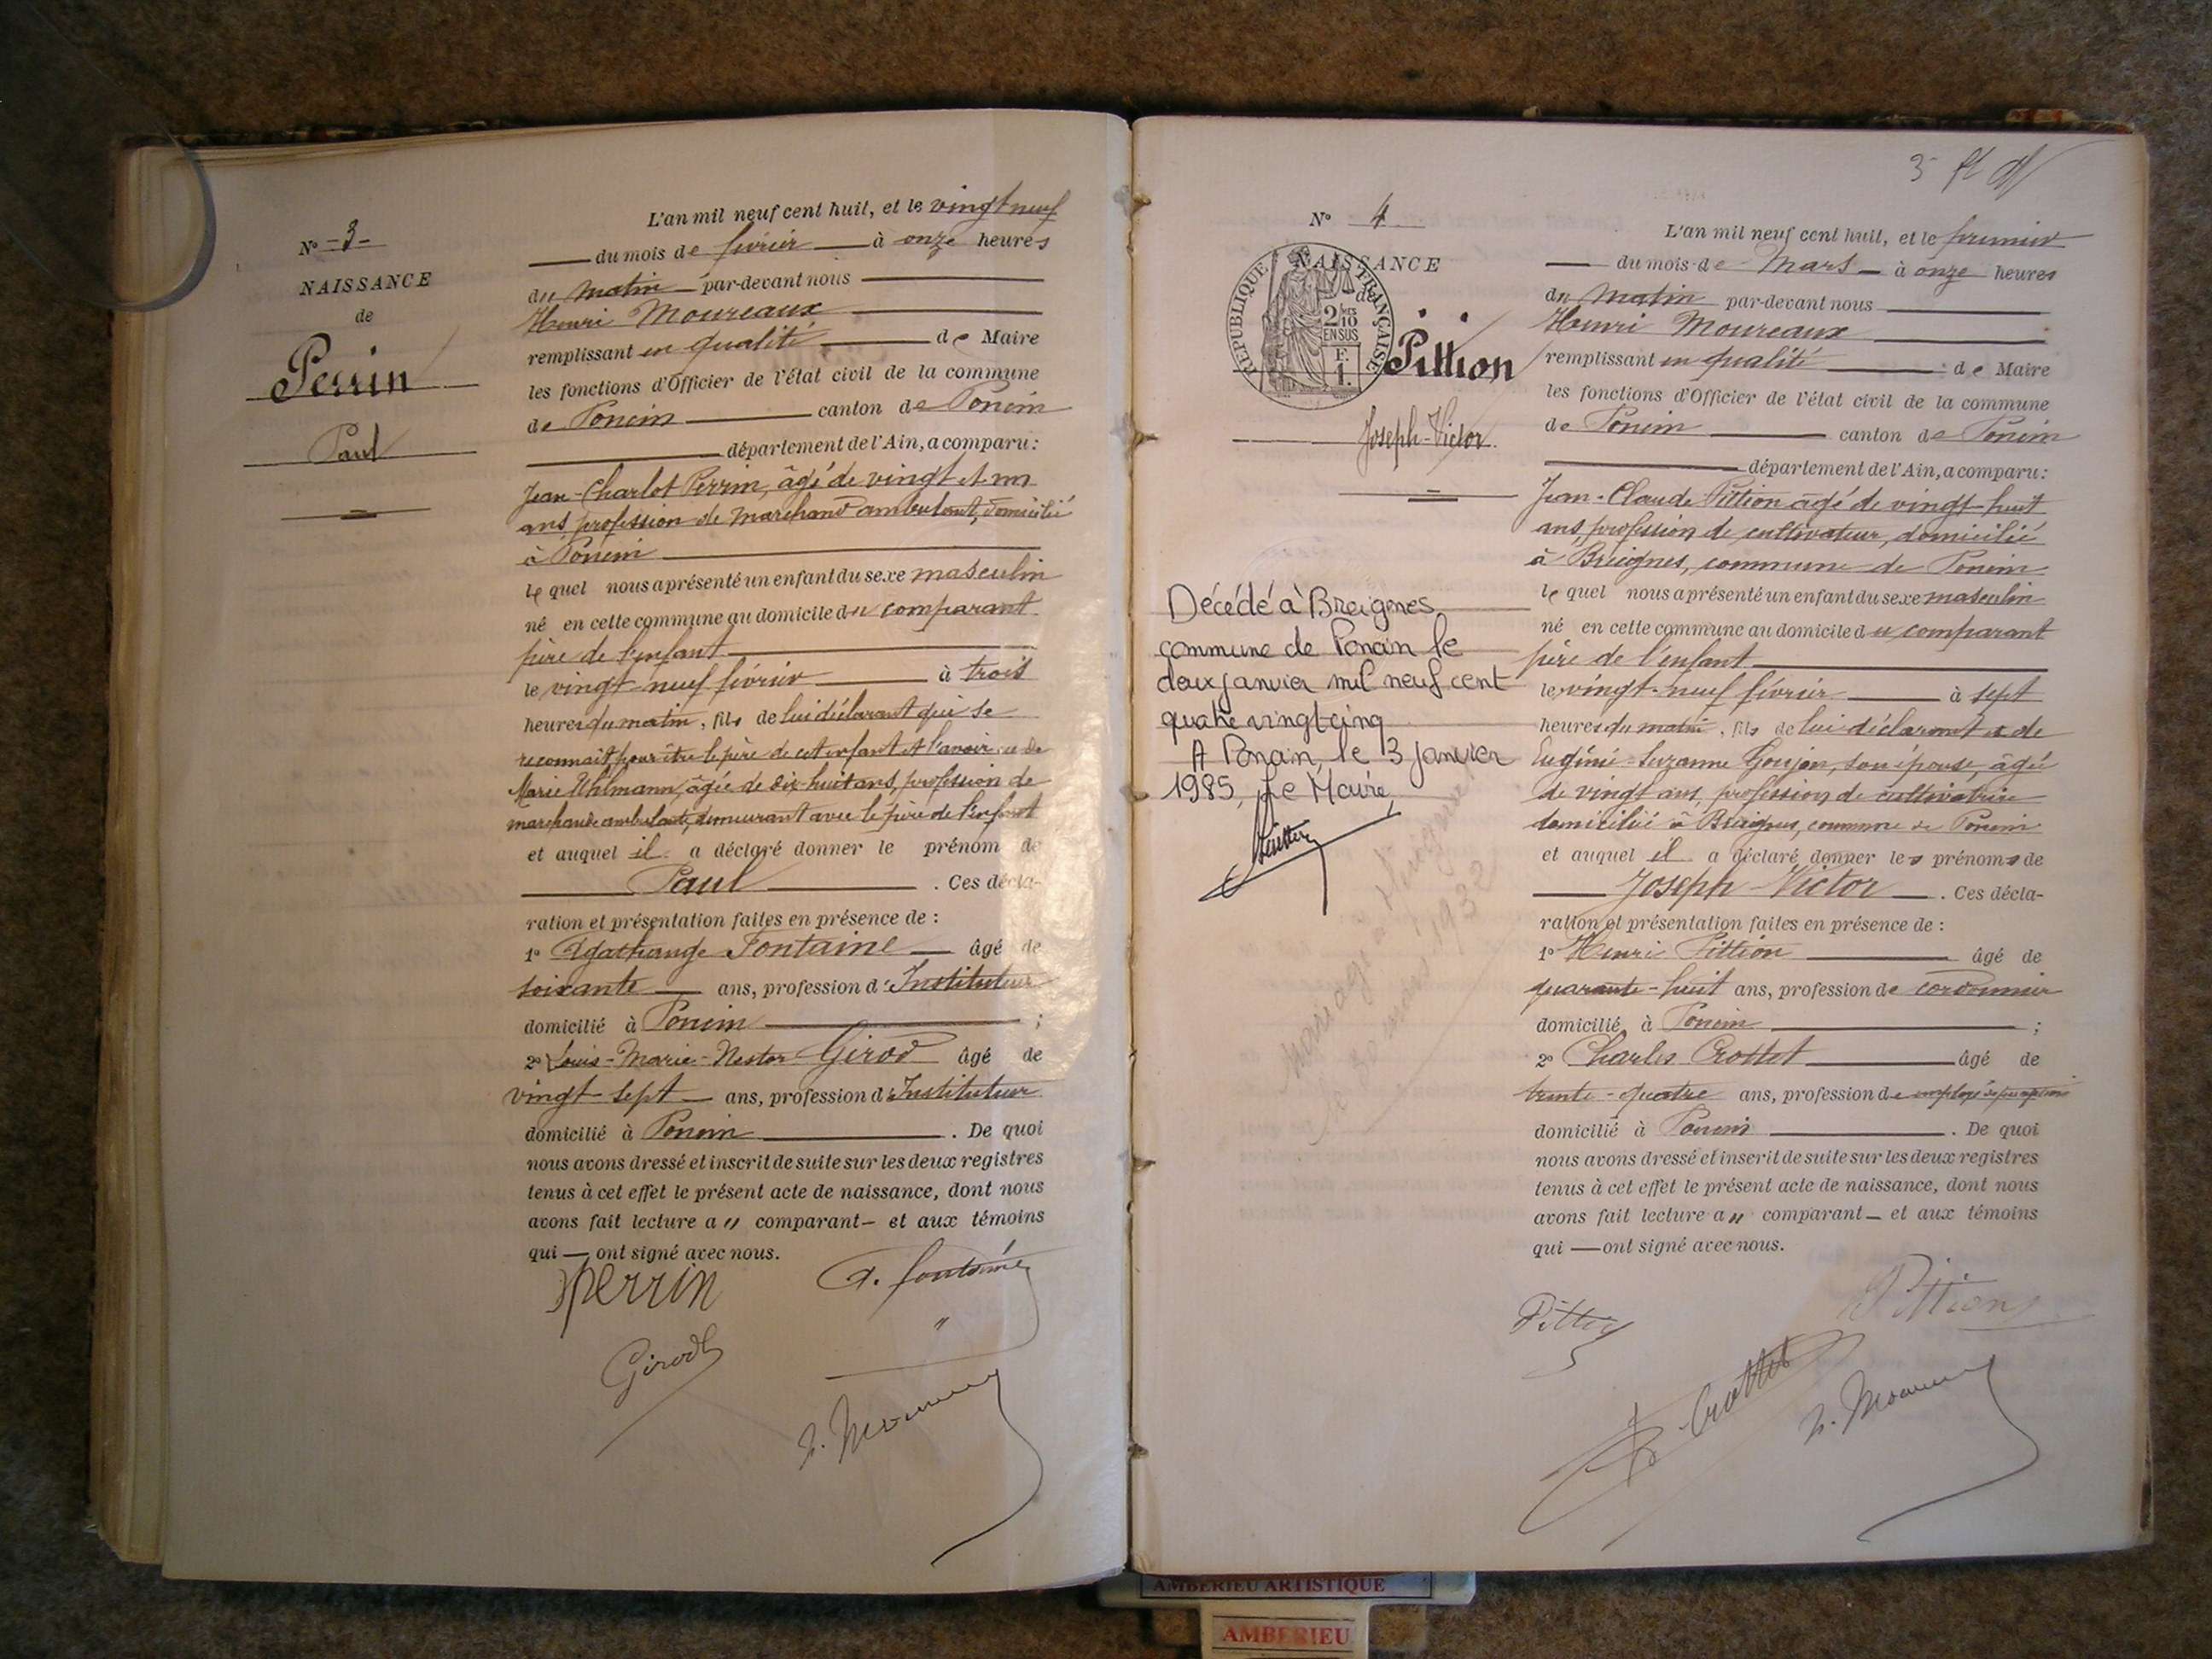 N° -3-
NAISSANCE
de
Perrin
Paul
L'an mil neuf cent huit, et le vingt neuf
du mois de février à onze heures
du matin par-devant nous
Henri Moureaux
remplissant en qualité de Maire
les fonctions d'Officier de l'état civil de la commune
de Poncin canton de Poncin
département de l'Ain, a comparu:
Jean-Charlot Perrin, âgé de vingt et un
ans profession de Marchand ambulant, domicilié
à Poncin
lequel nous a présenté un enfant du sexe masculin
né en cette commune au domicile du comparant
père de l'enfant
le vingt-neuf février à trois
heures du matin, fils de lui déclarant qui se
reconnaît pour être le père de cet enfant et l'avoir eu de
Marie Uhlmann, âgée de dix-huit ans, profession de
marchande ambulante, demeurant avec le père de l'enfant
et auquel il a déclaré donner le prénom de
Paul. Ces décla-
ration et présentation faites en présence de :
1° Agathange Fontaine âgé de
soixante ans, profession d'Instituteur
domicilié à Poncin ;
2° Louis-Marie-Nestor Girod âgé de
vingt-sept ans, profession d'Instituteur
domicilié à Poncin. De quoi
nous avons dressé et inscrit de suite sur les deux registres
tenus à cet effet le présent acte de naissance, dont nous
avons fait lecture au comparant et aux témoins
qui ont signé avec nous.
Perrin A. Fontaine
Girod
h. Moureaux
3
N° 4
NAISSANCE
de
RÉPUBLIQUE FRANÇAISE
2/10
EN SUS
Pittion
Joseph-Victor
Décédé à Breignes
commune de Poncin le
deux janvier mil neuf cent
quatre vingt cinq
A Poncin, le 3 janvier
1985, Le Maire,
Mariage à
le 30 1932
L'an mil neuf cent huit, et le premier
du mois de Mars à onze heures
du matin par-devant nous
Henri Moureaux
remplissant en qualité de Maire
les fonctions d'Officier de l'état civil de la commune
de Poncin canton de Poncin
département de l'Ain, a comparu:
Jean-Claude Pittion âgé de vingt-huit
ans, profession de cultivateur, domicilié
à Breignes, commune de Poncin
lequel nous a présenté un enfant du sexe masculin
né en cette commune au domicile du comparant
père de l'enfant
le vingt-neuf février à sept
heures du matin, fils de lui déclarant et de
Eugénie-Suzanne Goujon, son épouse, âgée
de vingt ans, profession de cultivatrice
domiciliée à Breignes, commune de Poncin
et auquel il a déclaré donner les prénoms de
Joseph-Victor. Ces décla-
ration et présentation faites en présence de :
1° Henri Pittion âgé de
quarante-huit ans, profession de cordonnier
domicilié à Poncin ;
2° Charles Crottet âgé de
trente-quatre ans, profession de employé
domicilié à Poncin. De quoi
nous avons dressé et inscrit de suite sur les deux registres
tenus à cet effet le présent acte de naissance, dont nous
avons fait lecture au comparant et aux témoins
qui ont signé avec nous.
Pittion Pittion
Crottet h. Moureaux
AMBERIEU ARTISTIQUE
AMBERIEU